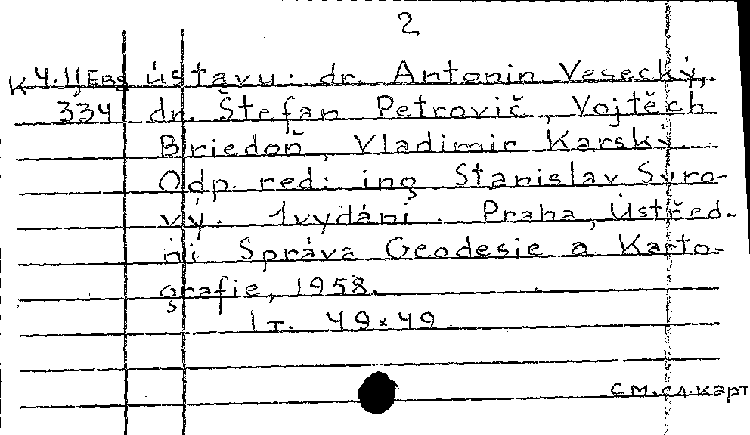 2
K 4.11 Ebs ústavu: dr. Antonin Vesecký,
334 dr. Štefan Petrovič, Vojtěch
Briedoň, Vladimir Karský.
Odp. red: ing Stanislav Syro-
vý. 1vydáni. Praha, Ustřed-
ni Správa Geodesie a Karto-
grafie, 1958.
1 т. 49×49
см.сл.карт